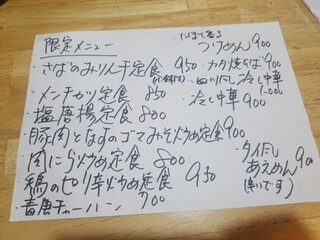 限定メニュー
さばのみりん干定食 950
・メンチカツ定食 850
・塩唐揚定食 800
・豚肉となすのゴマみそ炒め定食 900
・肉にら炒め定食 800
・鶏のピリ辛炒め定食 950
・青唐チャーハン 700
・にぼし香る
つけめん 900
・カタ焼そば 900
・四川風冷し中華 1,000
・冷し中華 900
・タイ風
あえめん 900
(辛いです)